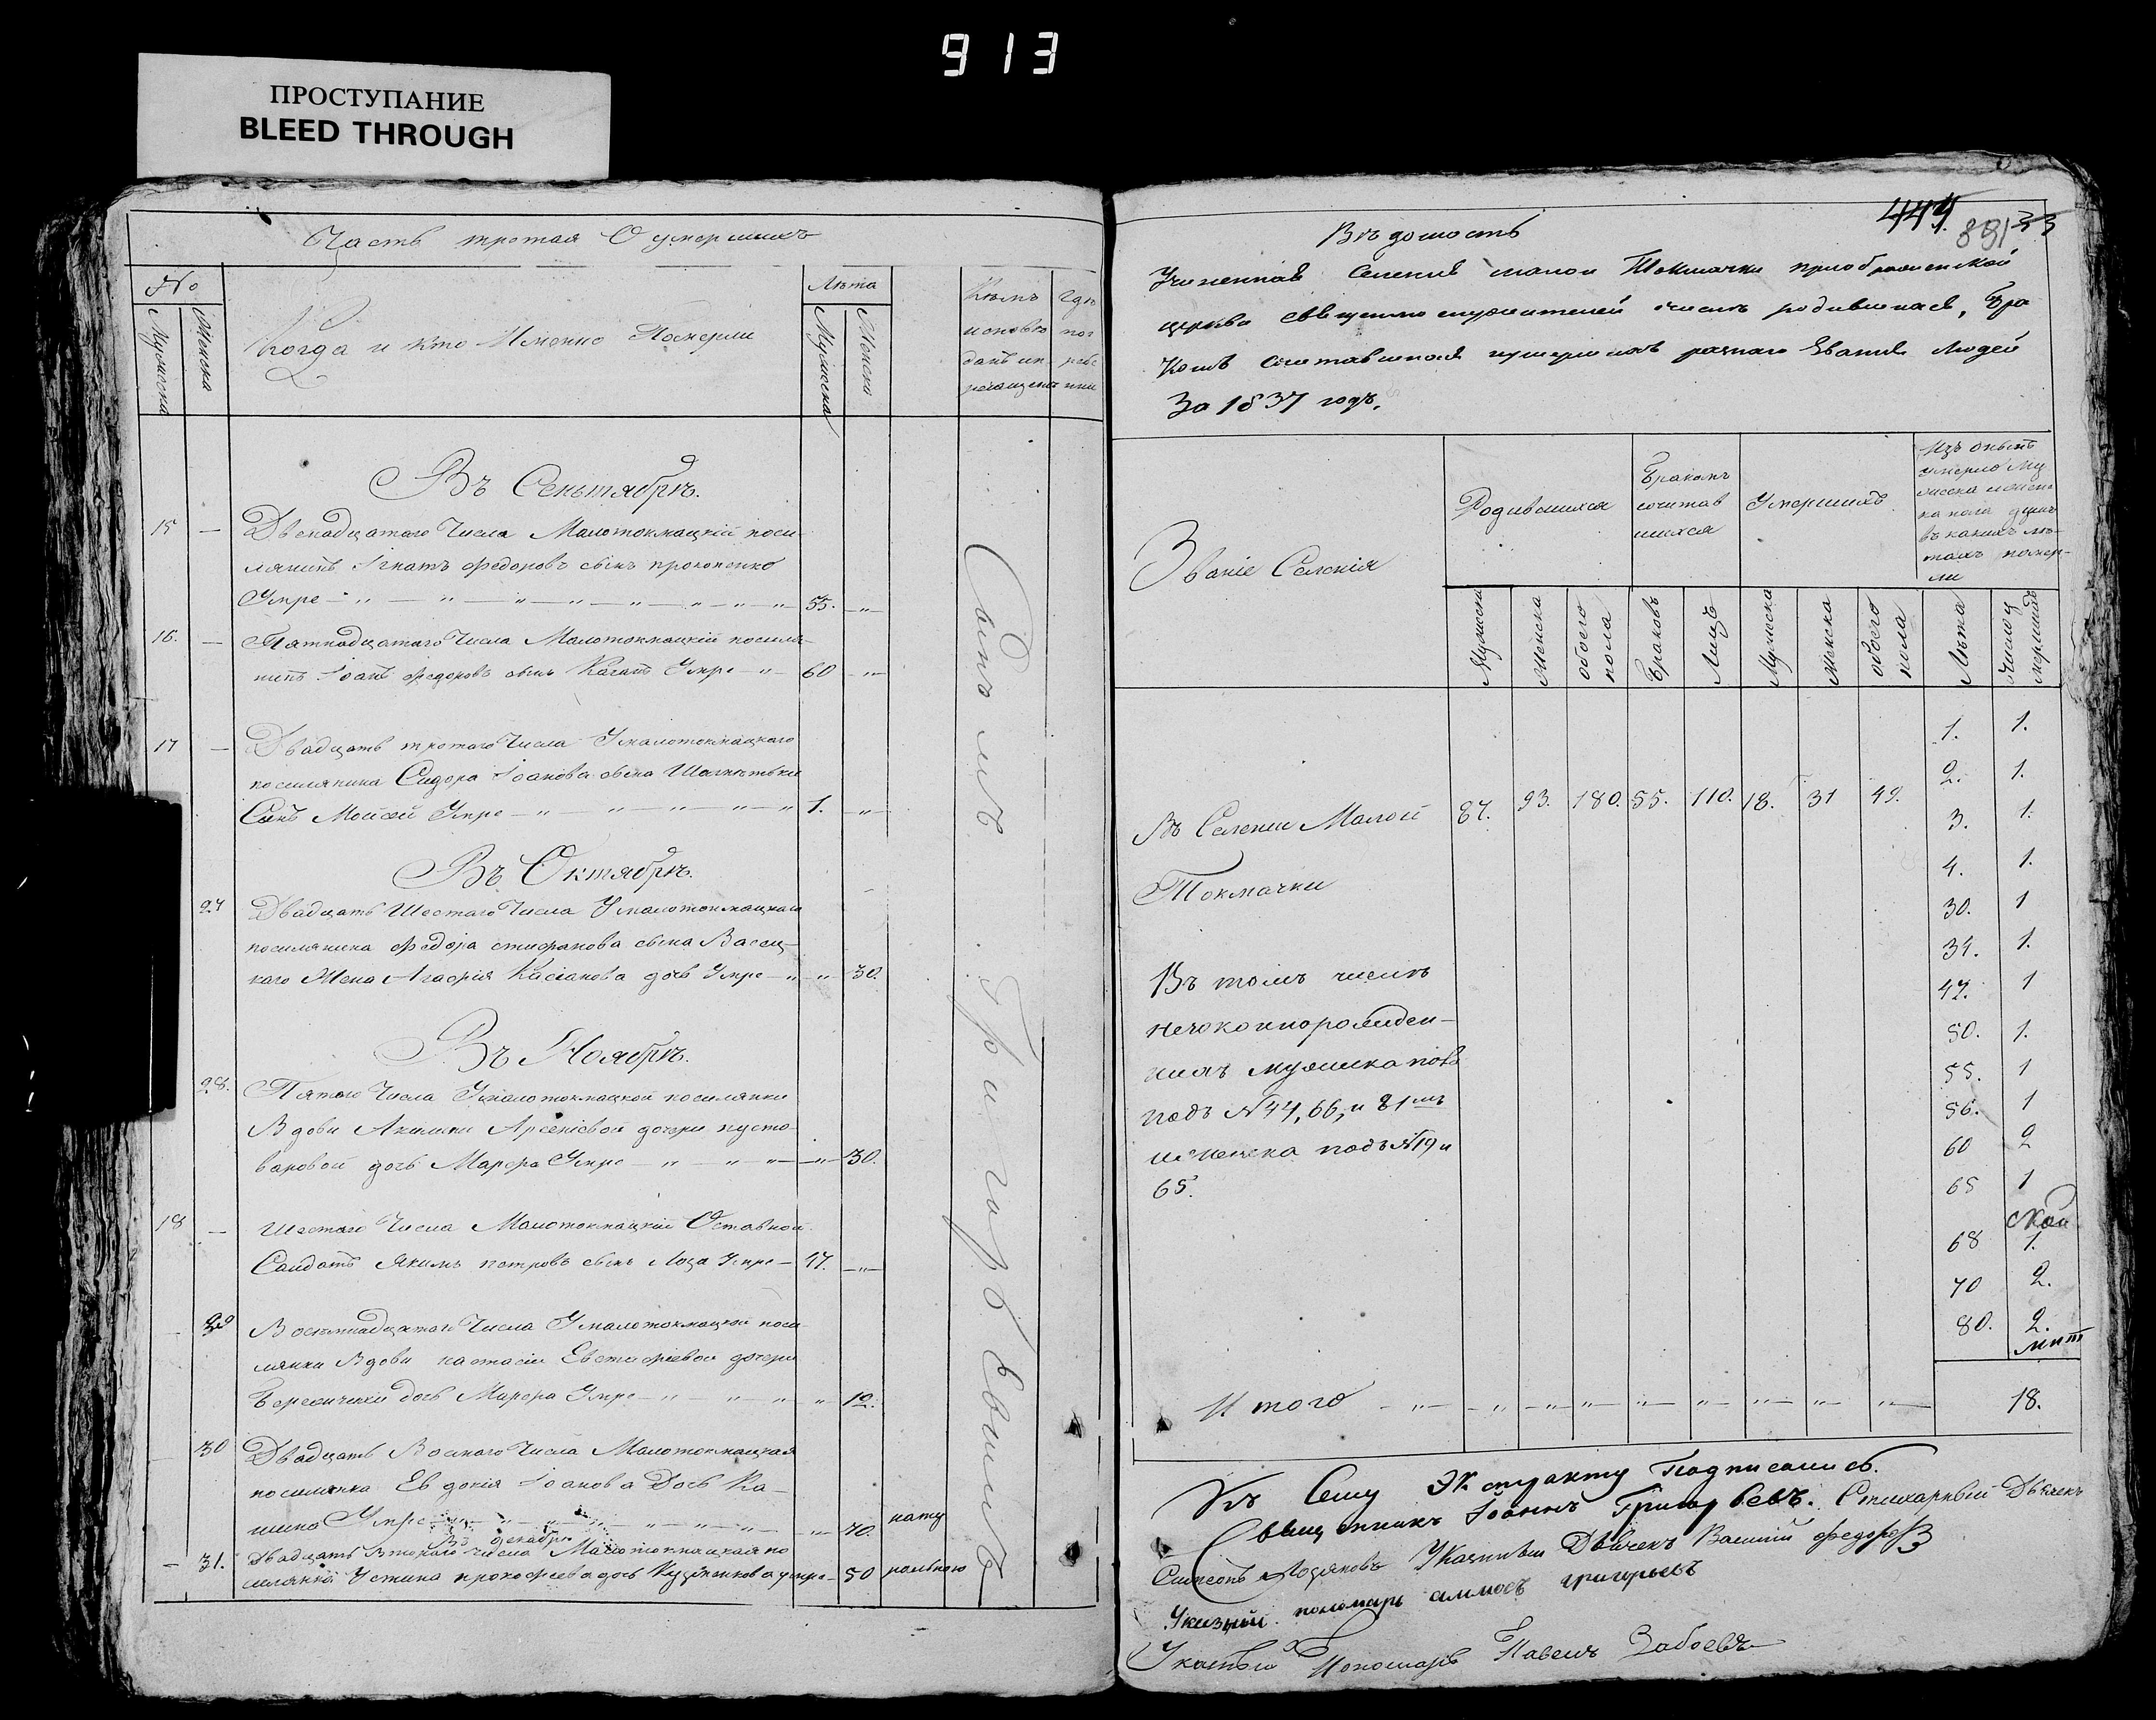 913
ПРОСТУПАНИЕ
BLEED THROUGH
Часть третая О умершихъ
№
Мужеска
Женска
Когда и кто Именно Померли
Лѣта
Мужеска
Женска
Кѣмъ
исповѣ
Гдѣ
Въ Сентябрѣ.
15 — Двенадцатого Числа Малотокмацкій посе
лянинъ Игнатъ федоровъ сынъ прокопенко
Умре 55.
16. — Пятнадцатого Числа Малотокмацкій поселя
нинъ Іоанъ федоровъ сынъ Умре 60
17 — Двадцать третого Числа Умалотокмацкаго
поселянина Сидора Іоанова сына
Синъ Мойсей Умре 1.
Въ Октябрѣ.
27 Двадцать Шестаго Числа Умалотокмацкаго
поселянина федора стифанова сына Васец
каго Жена Агафія Касіанова дочь Умре 30.
Въ Ноябрѣ.
28. Пятого Числа Умалотокмацкой поселянки
Вдови Арсеніевой дочери пусто
варовой дочь Марфа Умре 30.
18 — Шестаго Числа Малотокмацкій Оставной
Салдатъ Якимъ петровъ сынъ Лоза Умре 47.
Восемнадцятого Числа Умалотокмацкой посе
лянки Вдови настасіи Евстафіевой дочери
дочь Марфа Умре 12.
30 Двадцать Восмого Числа Малотокмацкая
поселянка Евдокія Іоанова Дочь Ка
Умре 70.
Въ декабрѣ
31. Двадцать Втораго Числа Малотокмацкая по
селянка Устина прокофиева дочь умре 50
нату
ральною
Іоаннъ Григорьевъ
449. 891 33
Вѣдомость
Учиненная Селения малой Токмачки преображенской
церкви священно служителей о числѣ родившихся, Бра
комъ сочетавшихся иумершихъ разнаго Звания Людей
За 1837 годъ.
Званіе Селенія
Родившихся
Бракомъ
сочетав
шихся
Умершихъ
въ какихъ лѣ-
тахъ помер-
ли
Мужеска
Женска
обоего
пола
Браковъ
Лицъ
Мужеска
Женска
обоего
пола
Лѣта
Число у
мершихъ
Въ Селении Малой 87. 93. 180. 55. 110. 18. 31 49.
Токмачки
Въ томъ числѣ
незаконнорожден-
нихъ мужеска пола
подъ № 44, 66, и 81мъ
и женска подъ № 19 и
65.
1. 1.
2. 1.
3. 1.
4. 1.
30. 1
34. 1.
47. 1
50. 1.
55. 1
56. 1
60 2
65 1
68 1.
70 2.
80. 2.
Итого 18.
Къ Сему Экстракту Подписались.
Священникъ Іоаннъ Григорьевъ. Стихарный Дьячекъ
Симеонъ Указный Дьячекъ Василий федоров
Указный пономарь аммосъ григорьевъ
Указный Пономарь Павелъ Забоевъ